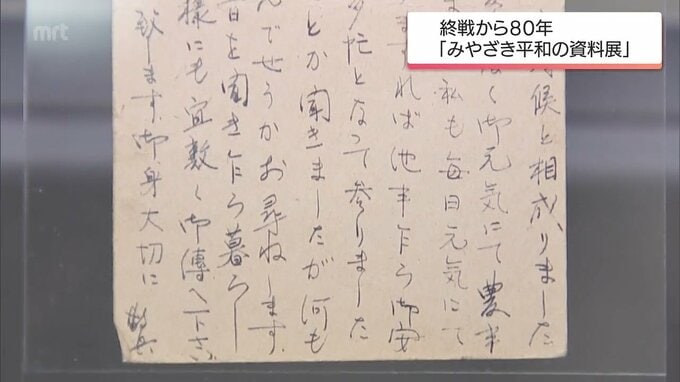 mrt
終戦から80年
「みやざき平和の資料展」
候と相成りました
く御元気にて農事
私も毎日元気にて
ますれば他事乍ら御安
多忙となって参りました
とか聞きましたが何も
んでせうかお尋ねします
日を聞き乍ら暮らし
様にも宜敷く御傳へ下さ
致します、御身大切に